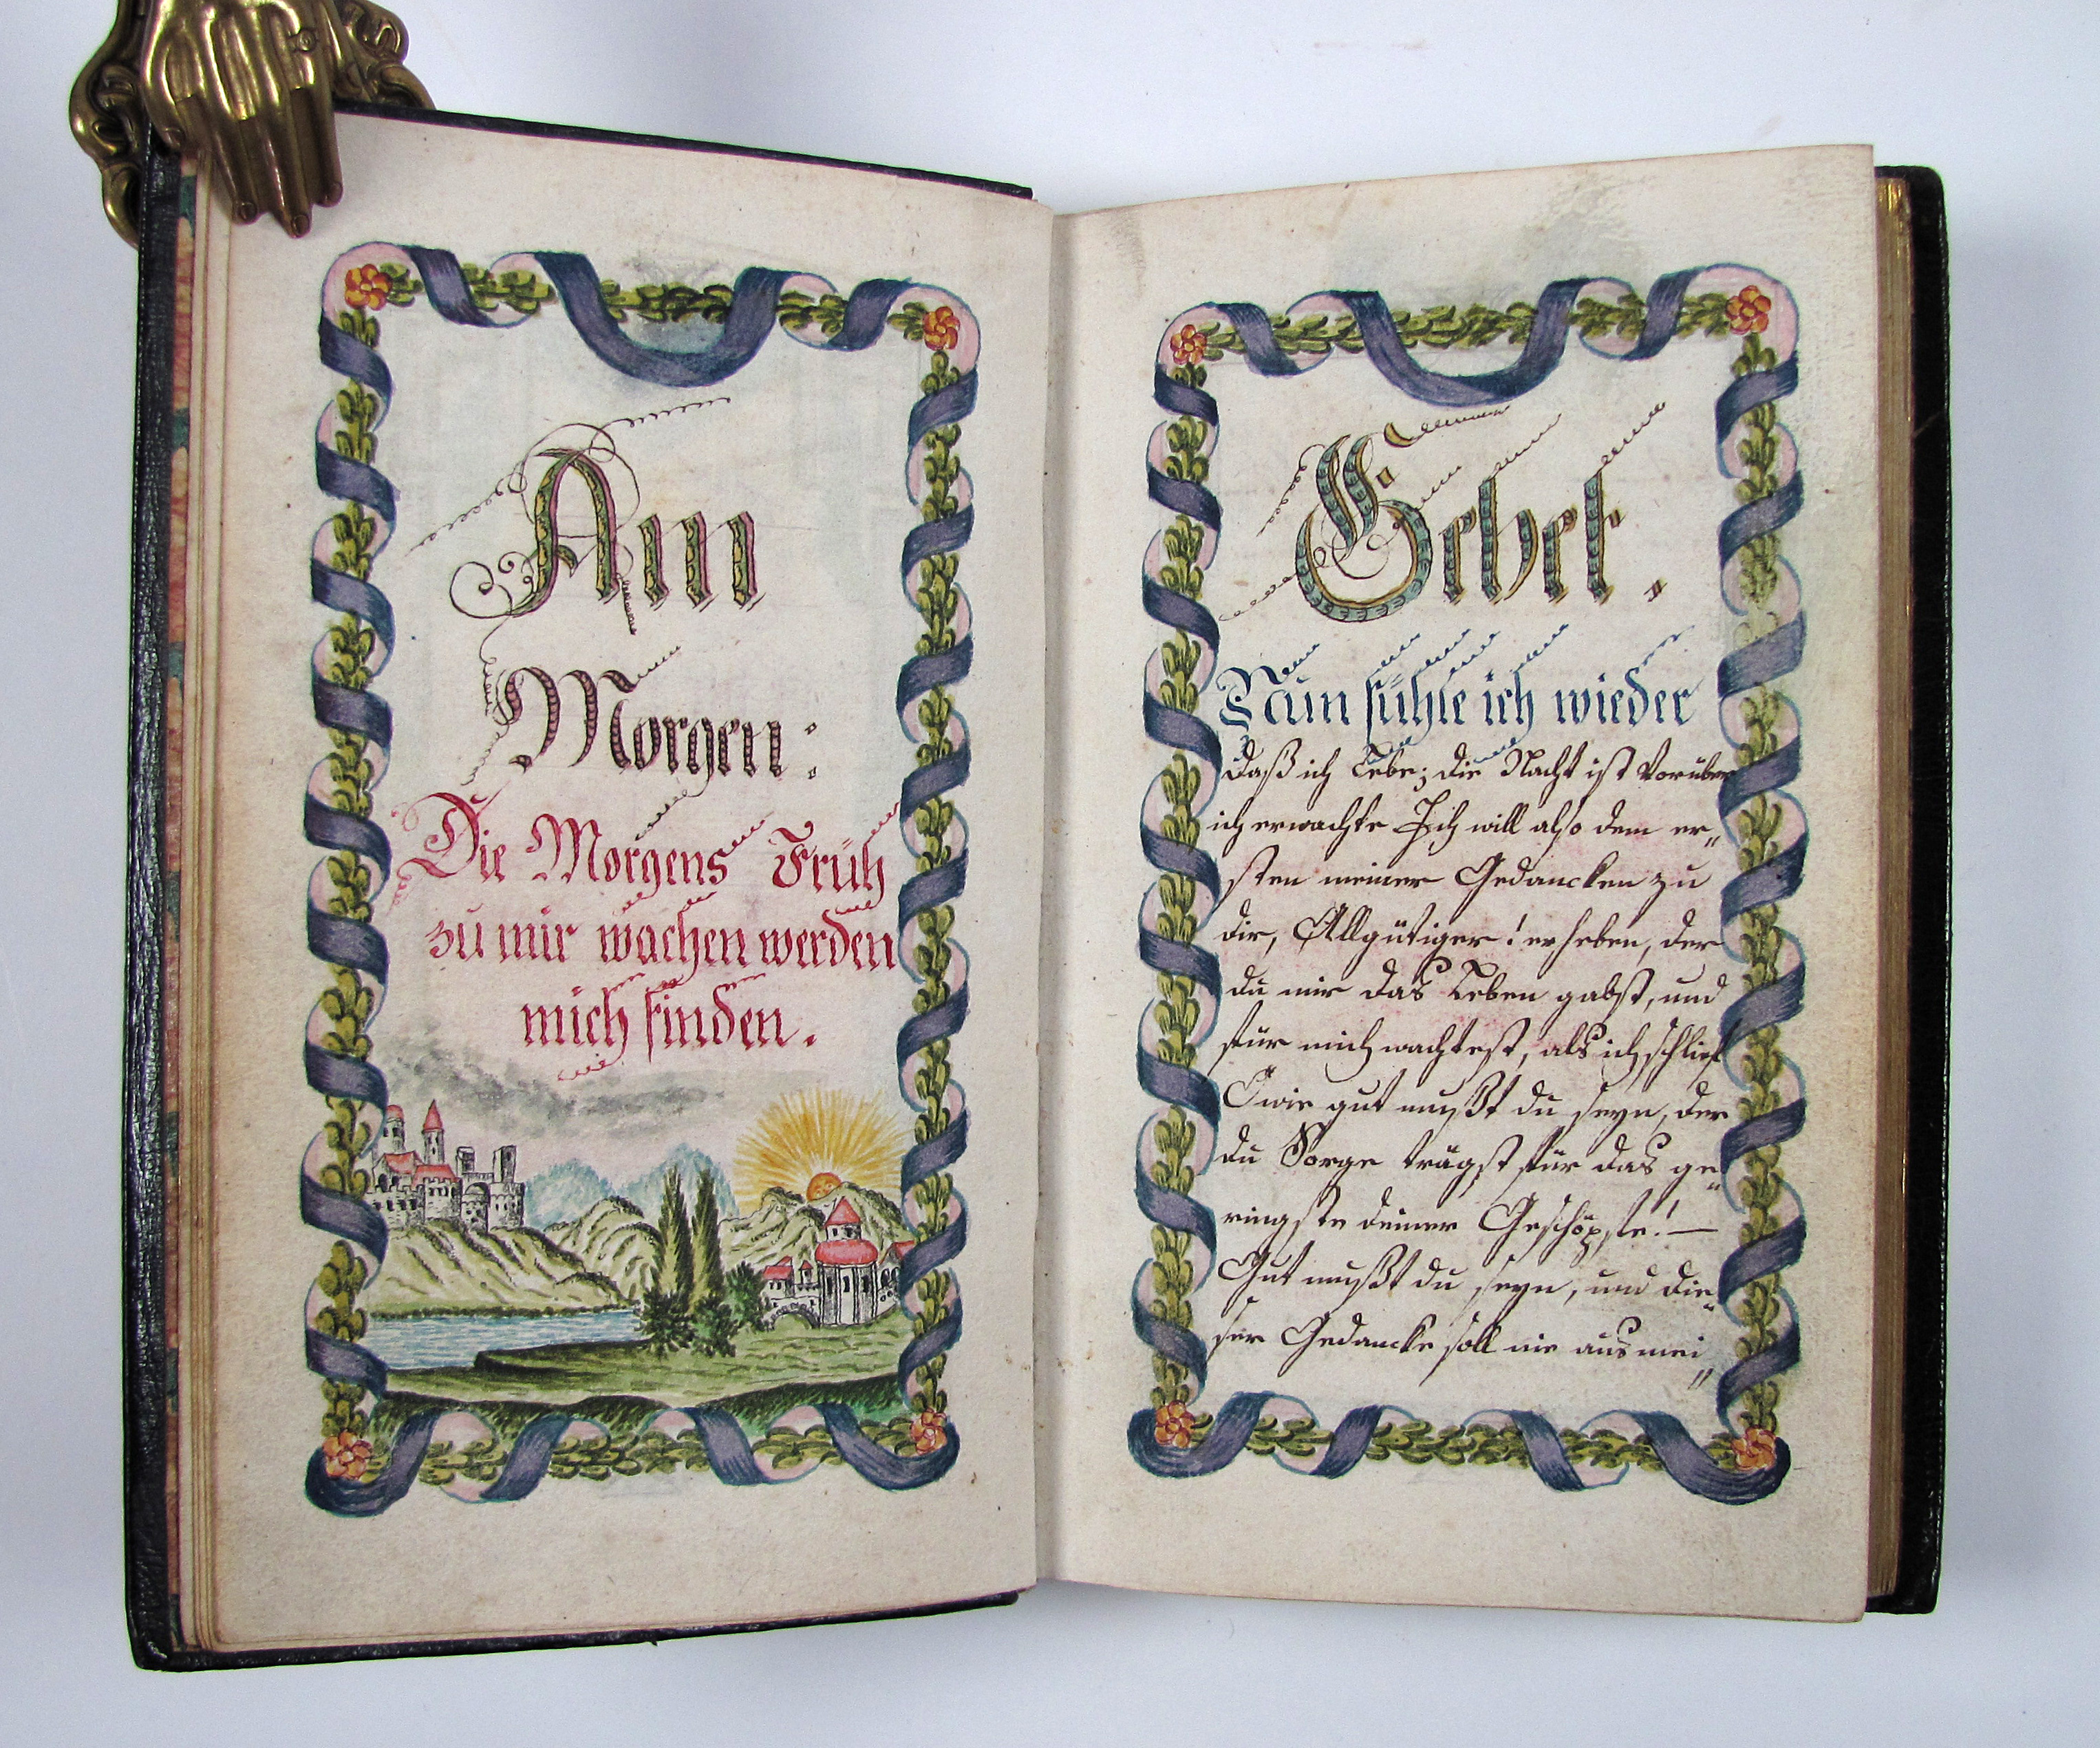 Am
Morgen:
Die Morgens Früh
zu mir wachen werden
mich finden.
Gebet.
Nun fühle ich wieder
daß ich Lebe; die Nacht ist Vorüber
ich erwachte Ich will also dem er„
sten meiner Gedancken zu
dir, Allgütiger! erheben, der
du mir das Leben gabst, und
für mich wachtest, als ich schlief
O wie gut mußt du seyn, der
du Sorge trägst für das ge„
ringste deiner Geschöpfe! —
Gut mußt du seyn, und die„
ser Gedancke soll nie aus mei„